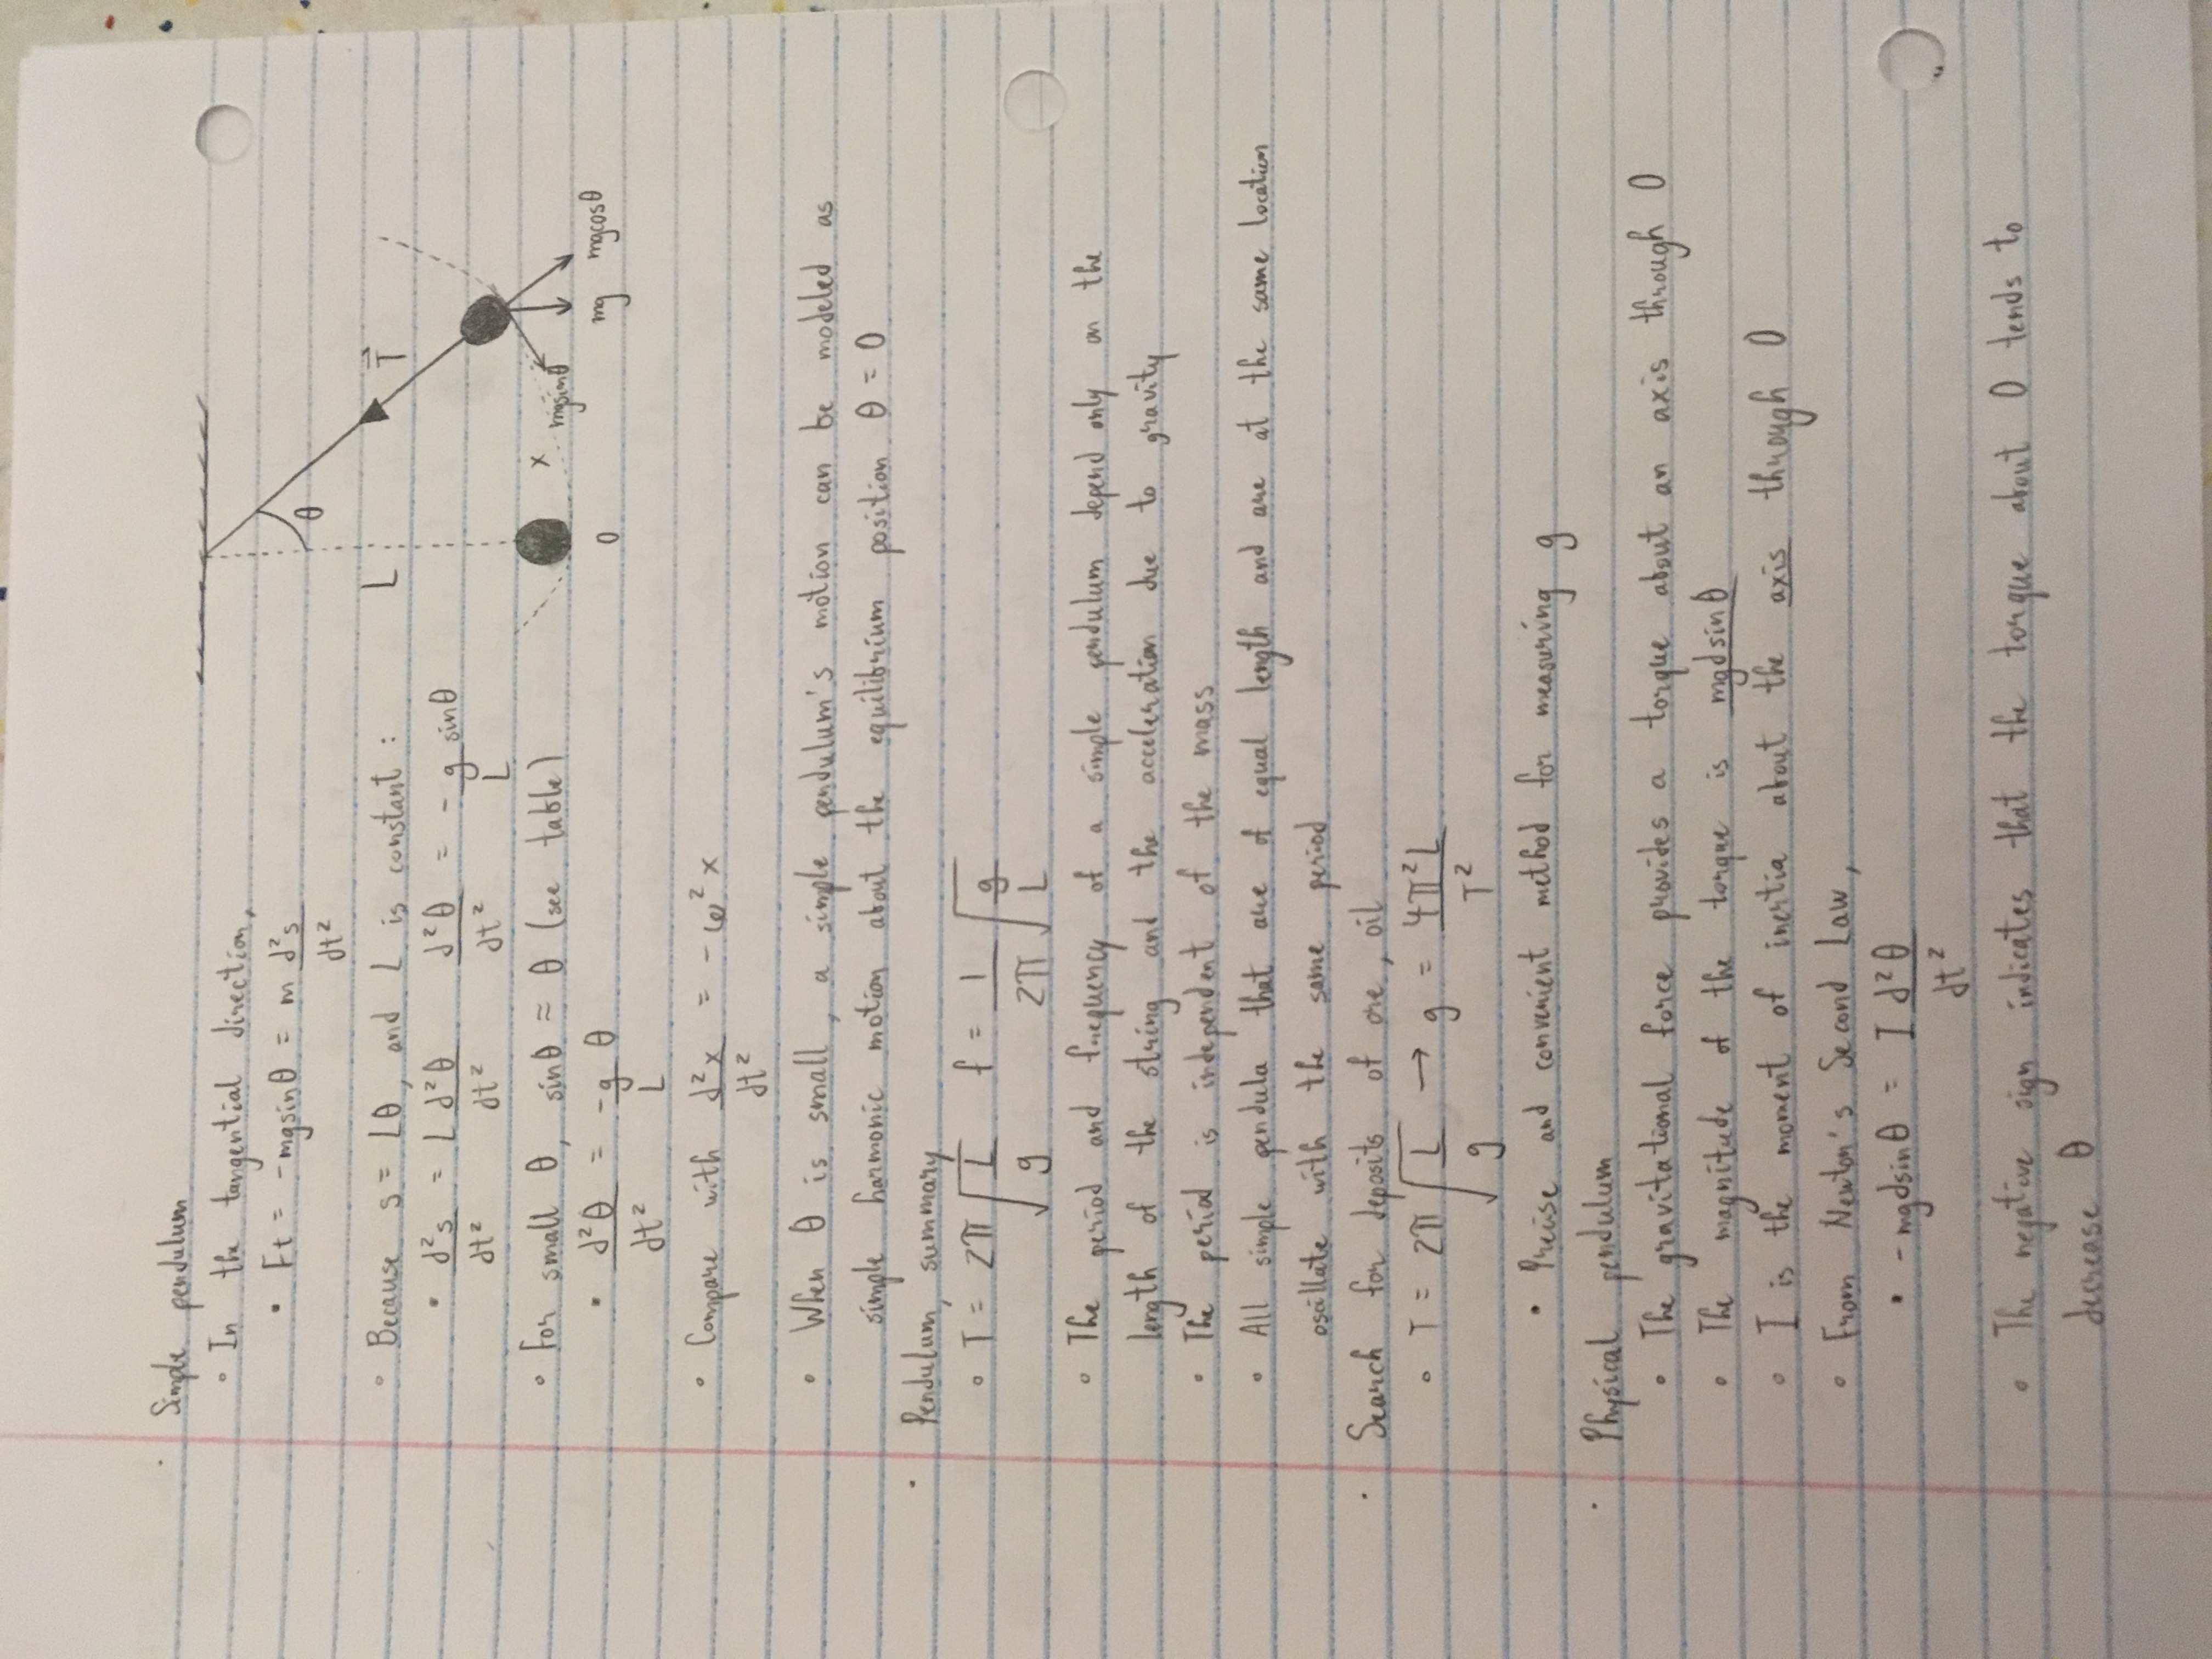 Simple pendulum
In the tangential direction,
Ft = -mgsinθ = m d²s/dt²
Because s = Lθ, and L is constant:
d²s/dt² = L d²θ/dt² d²θ/dt² = - g/L sinθ
For small θ, sinθ ≈ θ (see table)
d²θ/dt² = -g/L θ
Compare with d²x/dt² = -ω²x
L
θ
T⃗
x
0
mgsinθ
mg
mgcosθ
When θ is small, a simple pendulum's motion can be modeled as
simple harmonic motion about the equilibrium position θ = 0
Pendulum, summary
T = 2π √(L/g) f = 1/2π √(g/L)
The period and frequency of a simple pendulum depend only on the
length of the string and the acceleration due to gravity
The period is independent of the mass
All simple pendula that are of equal length and are at the same location
oscillate with the same period
Search for deposits of ore, oil
T = 2π √(L/g) → g = 4π²L/T²
Precise and convenient method for measuring g
Physical pendulum
The gravitational force provides a torque about an axis through O
The magnitude of the torque is mgdsinθ
I is the moment of inertia about the axis through O
From Newton's Second Law,
-mgdsinθ = I d²θ/dt²
The negative sign indicates that the torque about O tends to
decrease θ